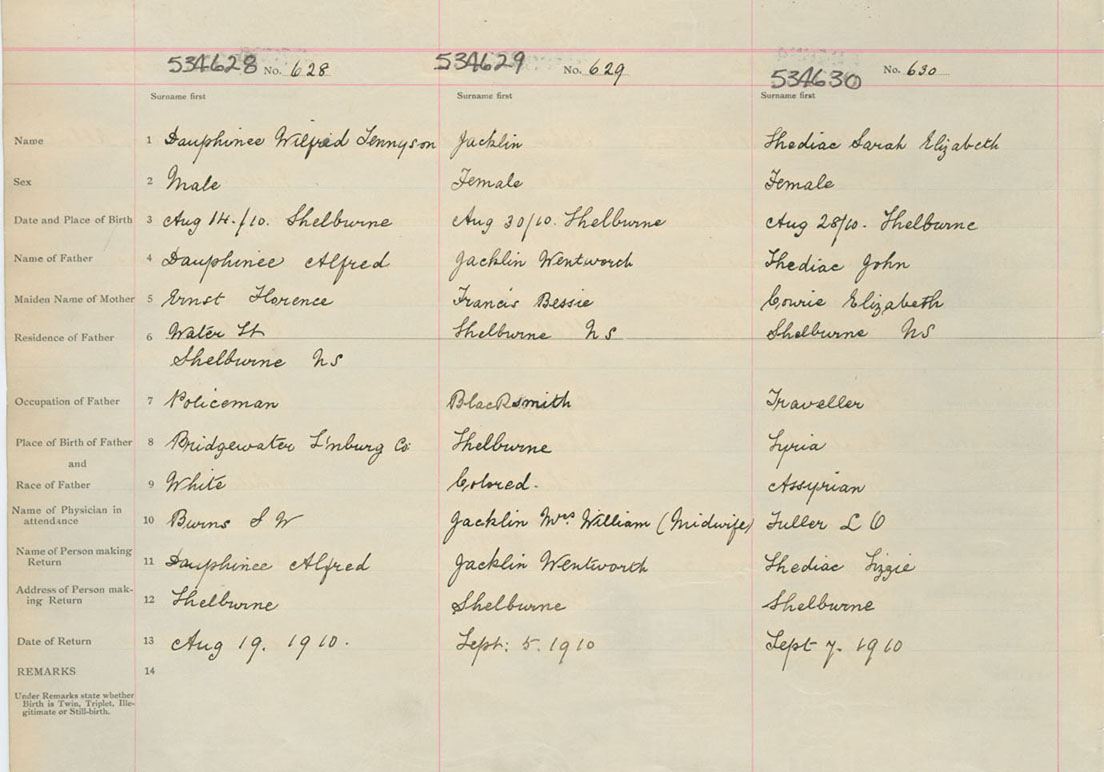 534628 No. 628 534629 No. 629 534630 No. 630
Surname first Surname first Surname first
Name 1 Dauphinee Wilfred Tennyson Jacklin Shediac Sarah Elizabeth
Sex 2 Male Female Female
Date and Place of Birth 3 Aug 14./10. Shelburne Aug 30/10. Shelburne Aug 28/10. Shelburne
Name of Father 4 Dauphinee Alfred Jacklin Wentworth Shediac John
Maiden Name of Mother 5 Ernst Florence Francis Bessie Cowie Elizabeth
Residence of Father 6 Water St Shelburne NS Shelburne NS
Shelburne NS
Occupation of Father 7 Policeman Blacksmith Traveller
Place of Birth of Father 8 Bridgewater L'nburg Co Shelburne Syria
and
Race of Father 9 White Colored. Assyrian
Name of Physician in
attendance 10 Burns J W Jacklin Mrs William (Midwife) Fuller L O
Name of Person making
Return 11 Dauphinee Alfred Jacklin Wentworth Shediac Lizzie
Address of Person mak-
ing Return 12 Shelburne Shelburne Shelburne
Date of Return 13 Aug 19. 1910. Sept: 5. 1910 Sept 7. 1910
REMARKS 14
Under Remarks state whether
Birth is Twin, Triplet, Ille-
gitimate or Still-birth.